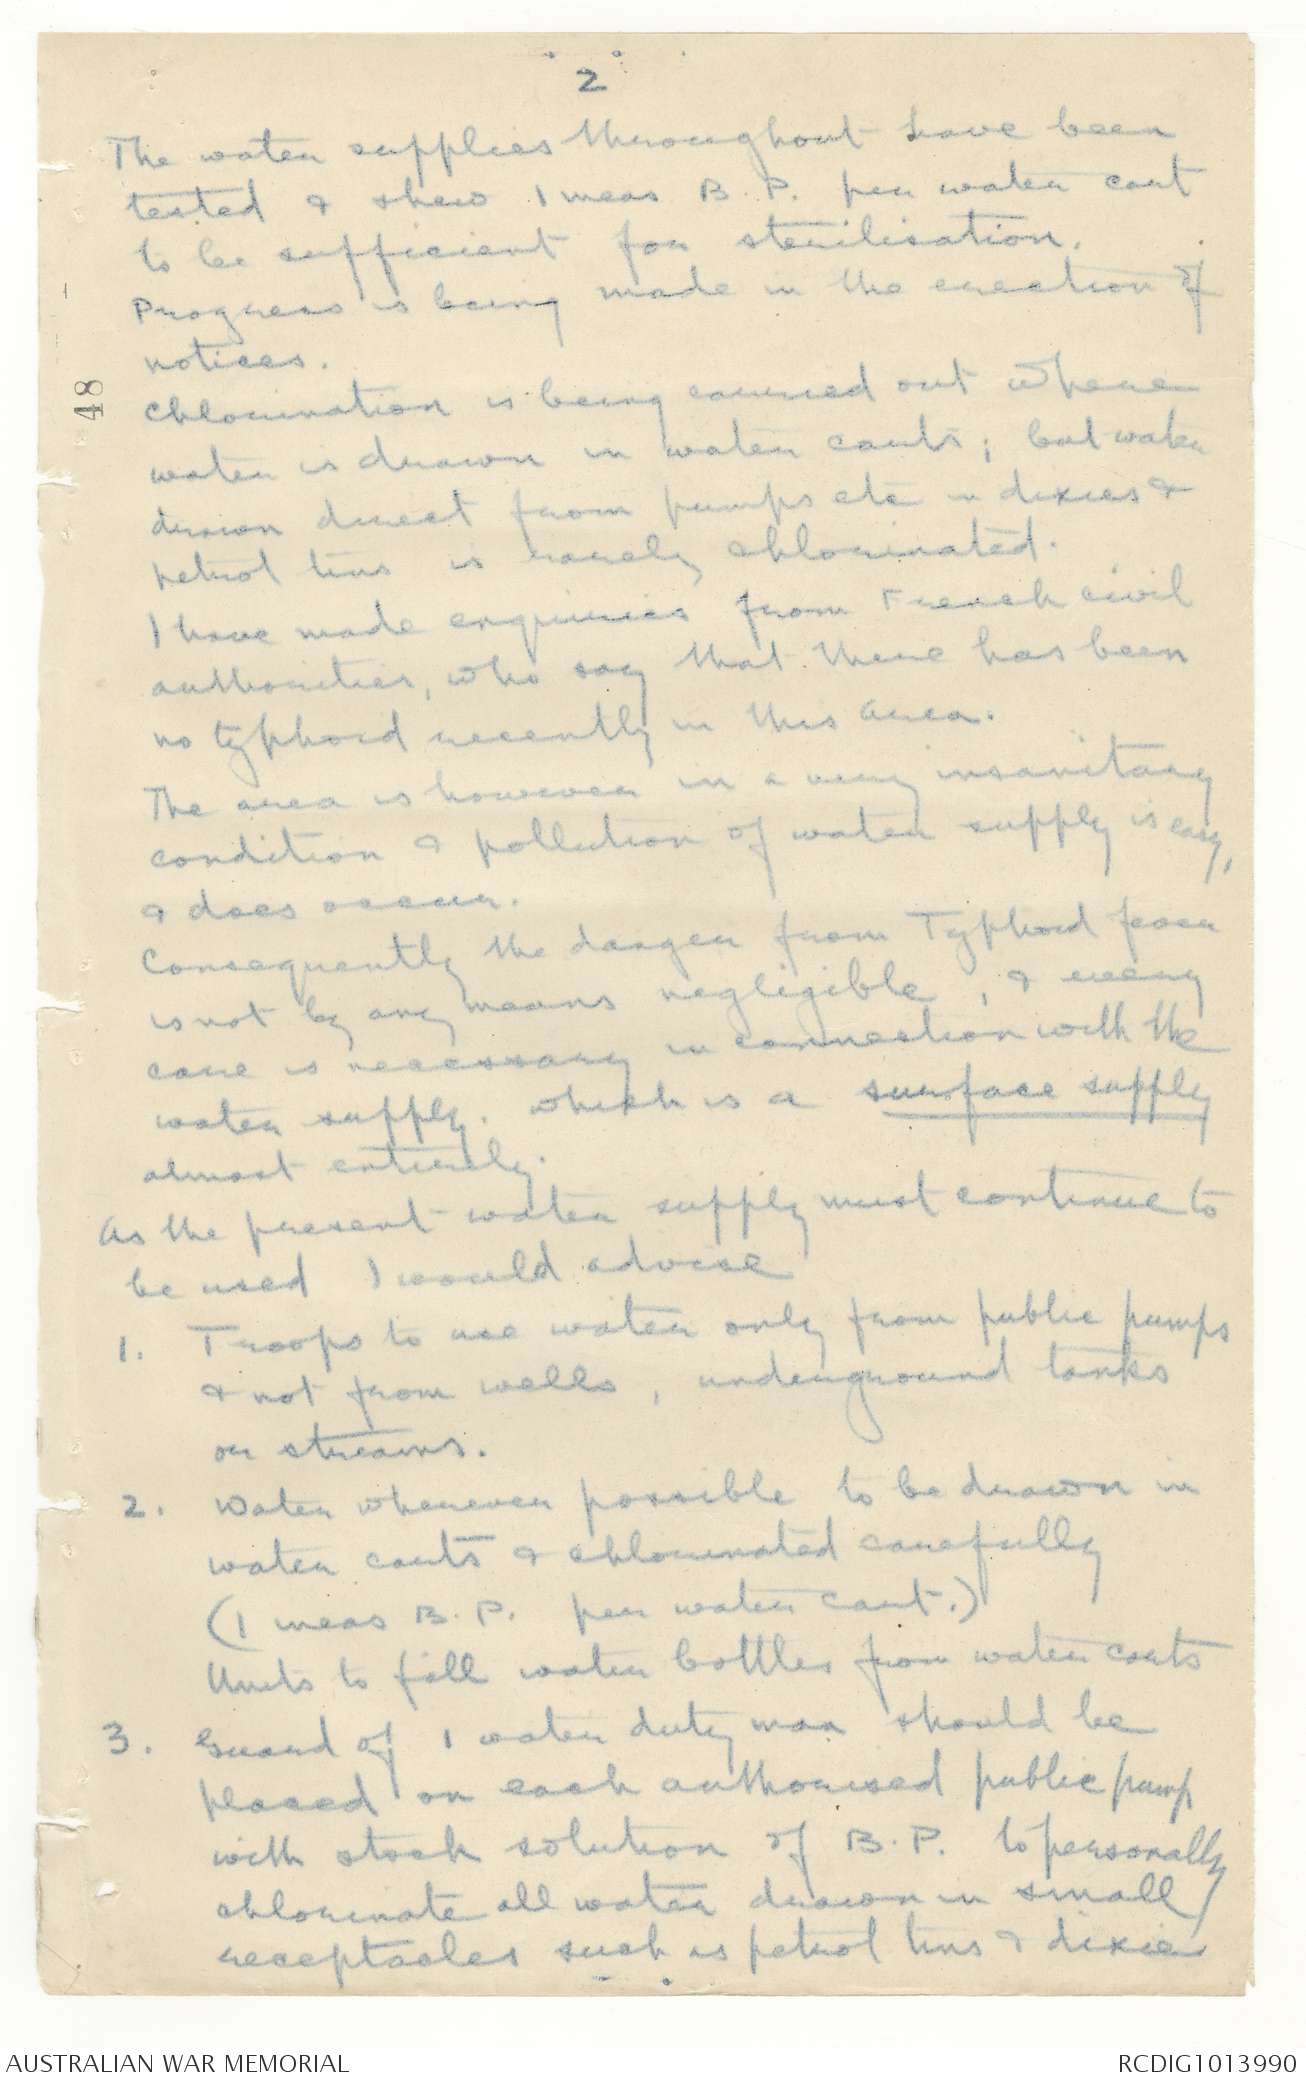 2
The water supplies throughout have been
tested & shew 1 meas B.P. per water cart
to be sufficient for sterilisation.
Progress is being made in the erection of
notices.
48
Chlorination is being carried out where
water is drawn in water carts; but water
drawn direct from pumps etc in dixies &
petrol tins is rarely chlorinated.
I have made enquiries from French civil
authorities, who say that there has been
no typhoid recently in this area.
The area is however in a very insanitary
condition & pollution of water supply is easy,
& does occur.
Consequently the danger from Typhoid fever
is not by any means negligible, & every
care is necessary in connection with the
water supply. which is a surface supply
almost entirely.
As the present water supply must continue to
be used I would advise
1. Troops to use water only from public pumps
& not from wells, underground tanks
or streams.
2. Water whenever possible to be drawn in
water carts & chlorinated carefully
(1 meas B.P. per water cart.)
Units to fill water bottles from water carts
3. Guard of 1 water duty man should be
placed on each authorised public pump
with stock solution of B.P. to personally
chlorinate all water drawn in small
receptacles such as petrol tins & dixies
AUSTRALIAN WAR MEMORIAL
RCDIG1013990